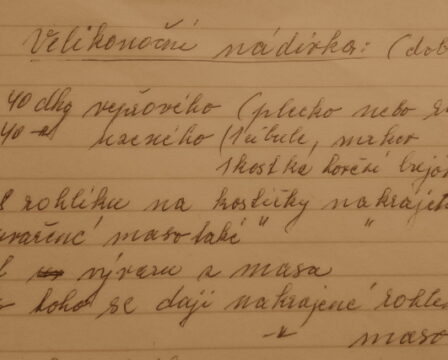 Velikonoční nádivka: (dob
40 dkg vepřového (plecko nebo
40 -"- uzeného (1 cibule, mrkev
1 kostka hovězí bujó
rohlíku na kostičky nakráje
uvařené maso také " "
l vývaru z masa
toho se dají nakrájené rohlí
-"- maso